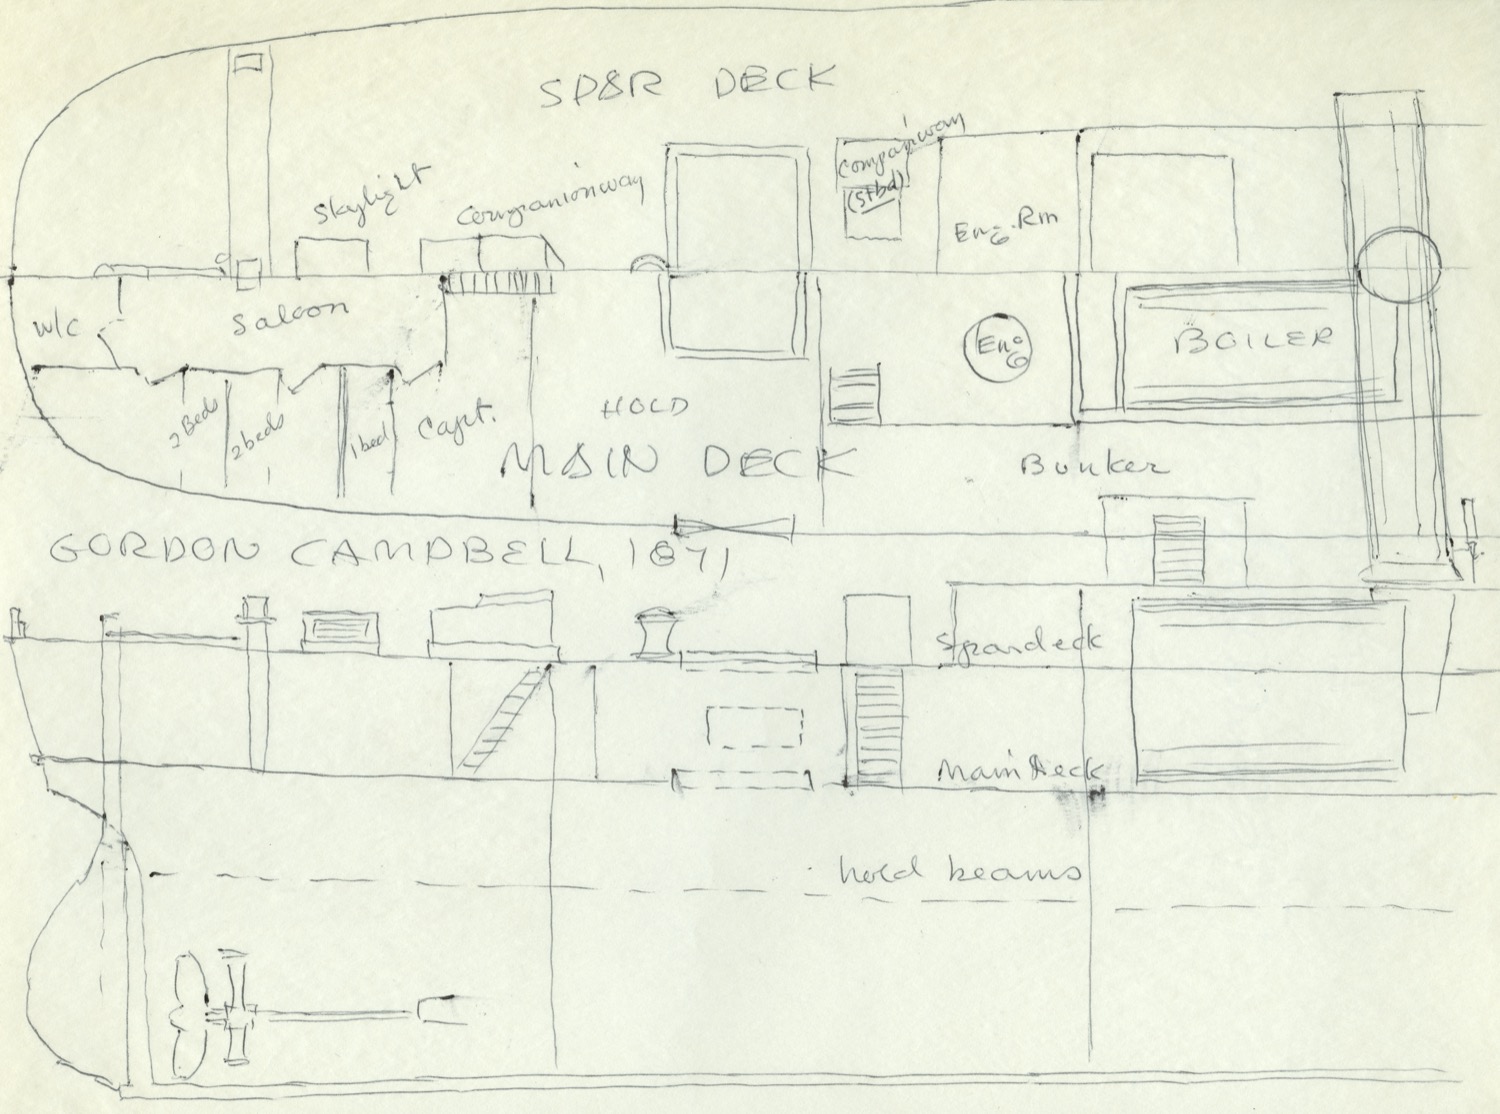 SPAR DECK
Companionway
(Stbd)
Skylight
Companionway
Eng. Rm
W/C
Saloon
Eng
BOILER
2 Beds
2 beds
1 bed
Capt.
HOLD
MAIN DECK
Bunker
GORDON CAMPBELL, 1871
Spardeck
Main Deck
hold beams